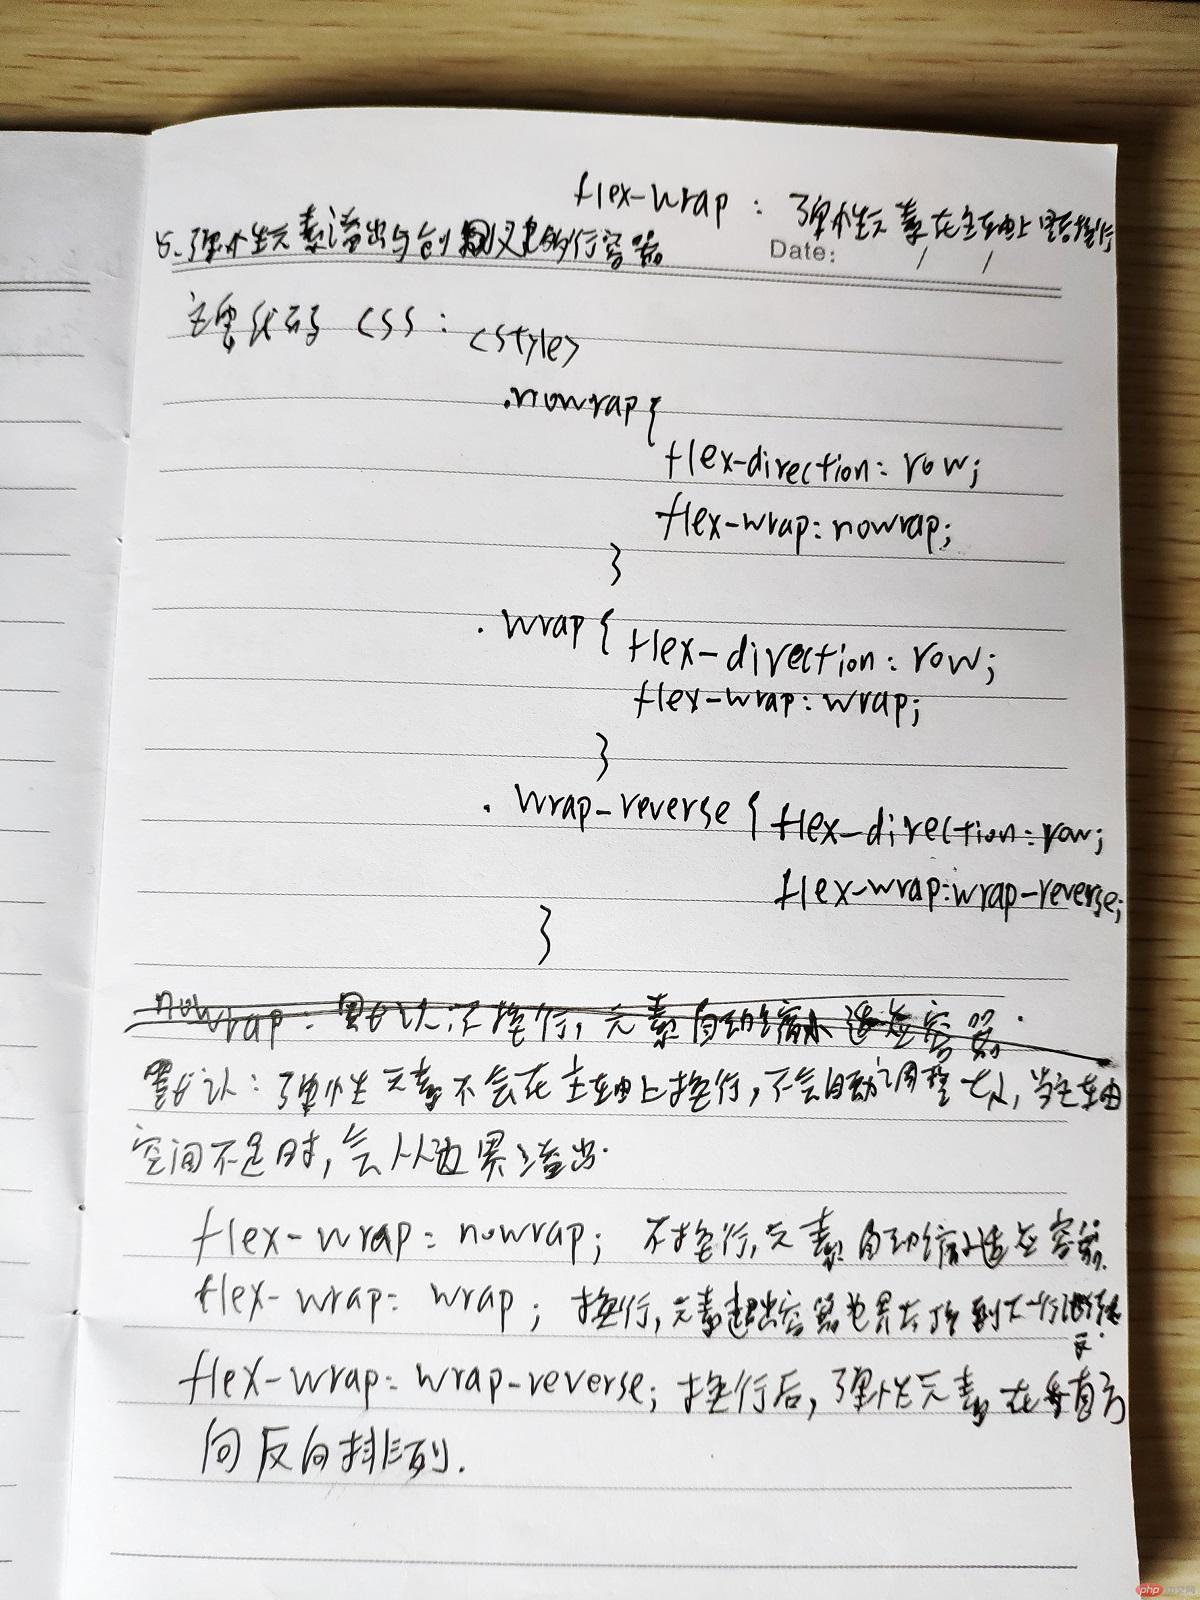 flex-wrap：弹性元素在主轴上是否换行
5.弹性元素溢出与创建多行容器
Date: / /
主要代码 CSS：<style>
.nowrap{
flex-direction: row;
flex-wrap: nowrap;
}
.wrap{ flex-direction: row;
flex-wrap: wrap;
}
.wrap-reverse{ flex-direction: row;
flex-wrap: wrap-reverse;
}
nowrap：默认：不换行，元素自动缩小适应容器.
默认：弹性元素不会在主轴上换行，不会自动调整大小，当主轴
空间不足时，会从边界溢出.
flex-wrap: nowrap; 不换行，元素自动缩小适应容器.
flex-wrap: wrap; 换行，元素超出容器边界大挤到下一行
flex-wrap: wrap-reverse; 换行后，弹性元素在垂直方
向反向排列.
php 中文网